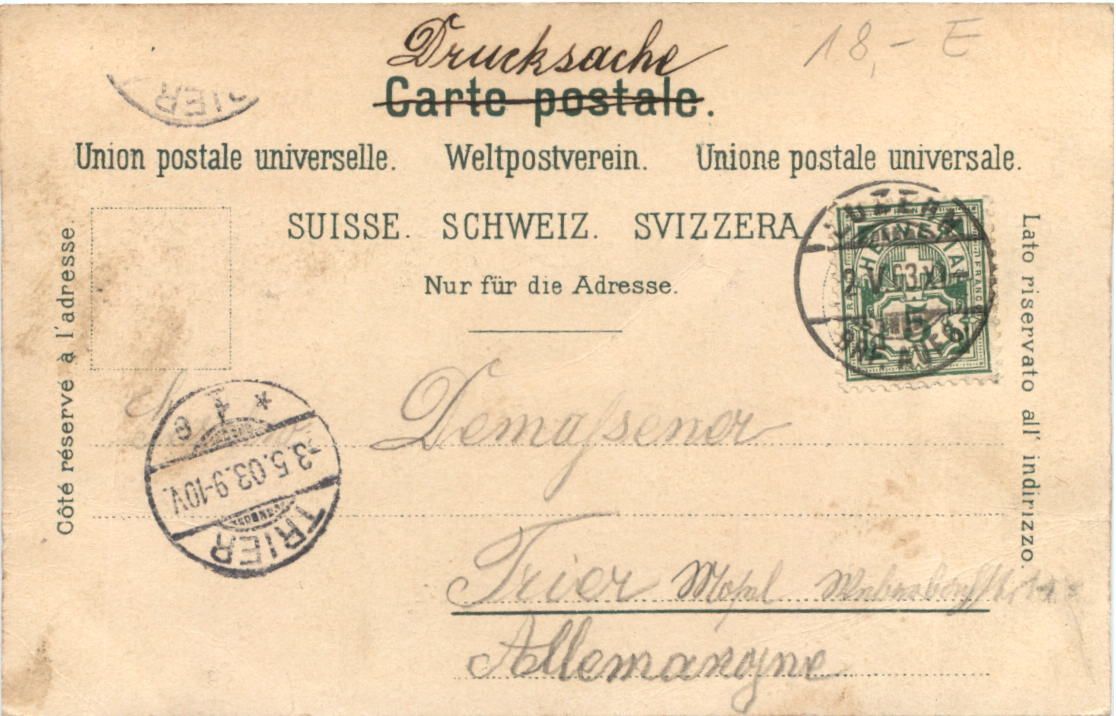 Drucksache
18,- E
Carte postale.
Union postale universelle. Weltpostverein. Unione postale universale.
SUISSE. SCHWEIZ. SVIZZERA.
Nur für die Adresse.
Côté réservé à l'adresse.
Lato riservato all' indirizzo.
LUZERN
2.V.03.XI
HELVETIA
FRANCO
5
TRIER
* 4 e
3.5.03.9-10V.
TRIER
Trier Mosel
Allemangne